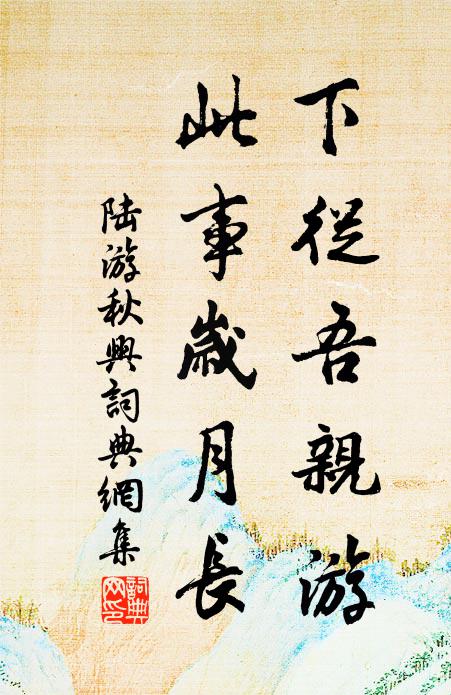 下從吾親游
此事歲月長
陆游秋興詞典網集
詞典網印